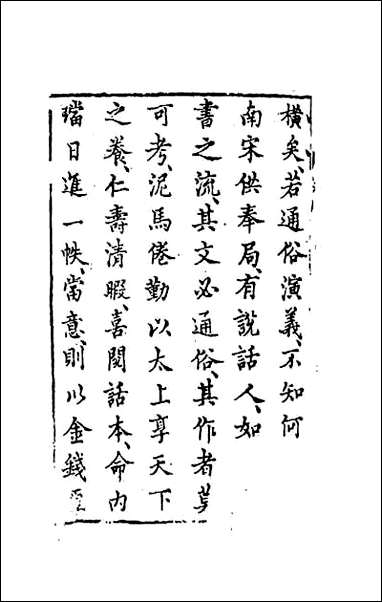 橫矣、若通俗演義、不知何
南宋供奉局、有說話人、如
書之流、其文必通俗、其作者莫
可考、泥馬倦勤以太上享天下
之養、仁壽清暇、喜閱話本、命內
璫日進一帙、當意、則以金錢